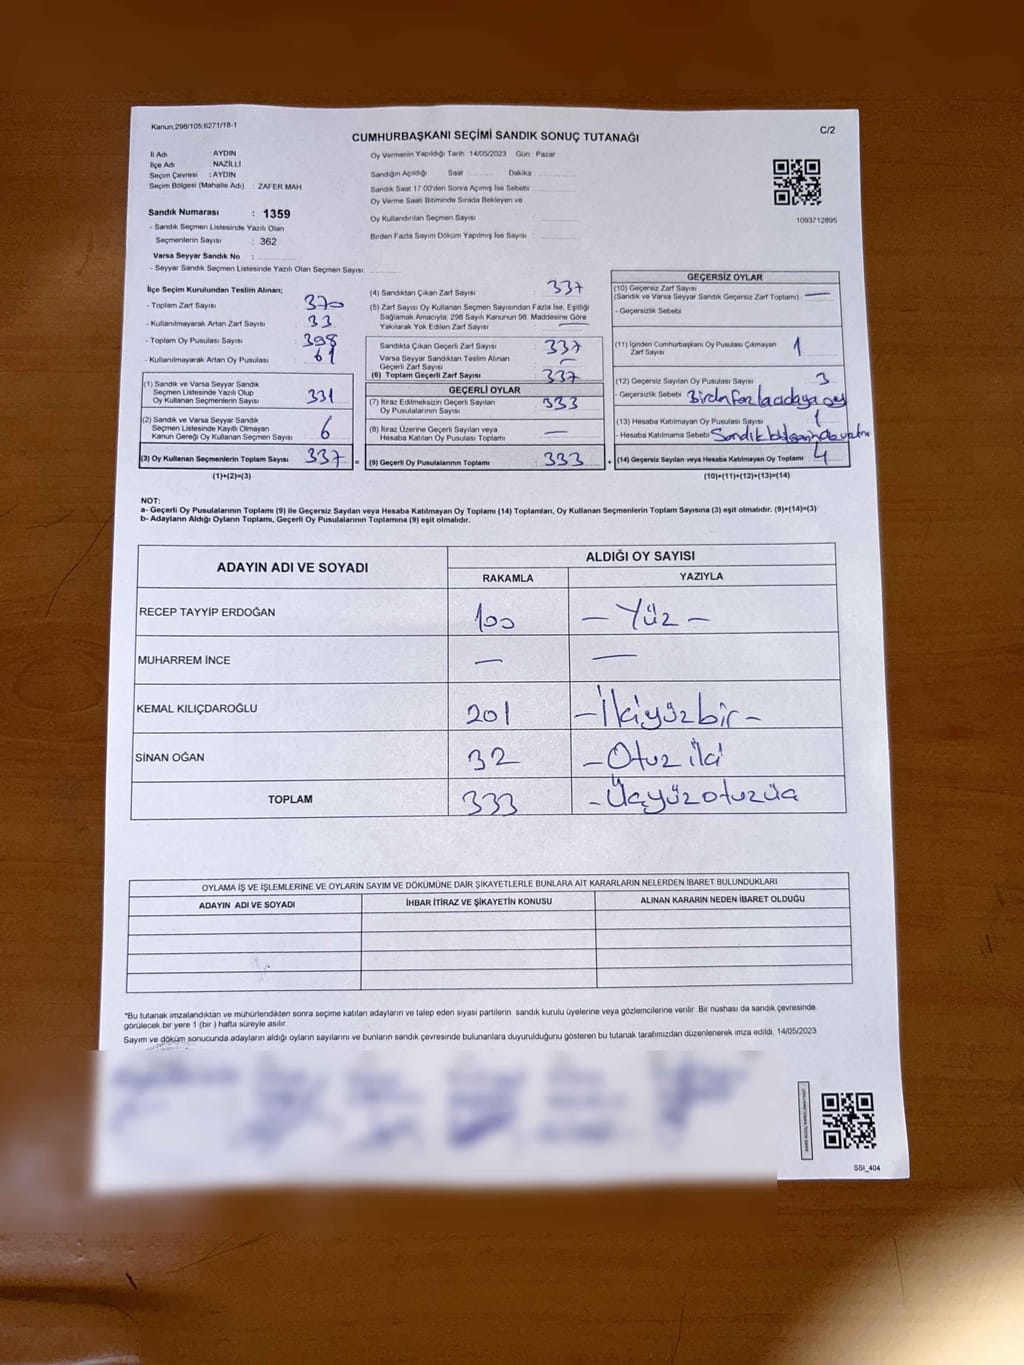 Kanun;298/105;6271/18-1
C/2
CUMHURBAŞKANI SEÇİMİ SANDIK SONUÇ TUTANAĞI
İl Adı : AYDIN
İlçe Adı : NAZİLLİ
Seçim Çevresi : AYDIN
Seçim Bölgesi (Mahalle Adı) : ZAFER MAH
Oy Vermenin Yapıldığı Tarih :14/05/2023 Gün : Pazar
Sandığın Açıldığı Saat Dakika
Sandık Saat 17:00'den Sonra Açımış İse Sebebi
Oy Verme Saati Bitiminde Sırada Bekleyen ve
Oy Kullandırılan Seçmen Sayısı :
Birden Fazla Sayım Döküm Yapılmış İse Sayısı :
1093712895
Sandık Numarası : 1359
- Sandık Seçmen Listesinde Yazılı Olan
Seçmenlerin Sayısı : 362
Varsa Seyyar Sandık No :
- Seyyar Sandık Seçmen Listesinde Yazılı Olan Seçmen Sayısı:
İlçe Seçim Kurulundan Teslim Alınan;
- Toplam Zarf Sayısı : 370
- Kullanılmayarak Artan Zarf Sayısı : 33
- Toplam Oy Pusulası Sayısı : 398
- Kullanılmayarak Artan Oy Pusulası : 61
(1) Sandık ve Varsa Seyyar Sandık
Seçmen Listesinde Yazılı Olup
Oy Kullanan Seçmenlerin Sayısı : 331
(2) Sandık ve Varsa Seyyar Sandık
Seçmen Listesinde Kayıtlı Olmayan
Kanun Gereği Oy Kullanan Seçmen Sayısı : 6
(3) Oy Kullanan Seçmenlerin Toplam Sayısı : 337 =
(1)+(2)=(3)
(4) Sandıktan Çıkan Zarf Sayısı : 337
(5) Zarf Sayısı Oy Kullanan Seçmen Sayısından Fazla İse, Eşitliği
Sağlamak Amacıyla; 298 Sayılı Kanunun 98. Maddesine Göre
Yakılarak Yok Edilen Zarf Sayısı : —
Sandıkta Çıkan Geçerli Zarf Sayısı : 337
Varsa Seyyar Sandıktan Teslim Alınan
Geçerli Zarf Sayısı : —
(6) Toplam Geçerli Zarf Sayısı : 337
GEÇERLİ OYLAR
(7) İtiraz Edilmeksizin Geçerli Sayılan
Oy Pusulalarının Sayısı : 333
(8) İtiraz Üzerine Geçerli Sayılan veya
Hesaba Katılan Oy Pusulası Toplamı : —
(9) Geçerli Oy Pusulalarının Toplamı : 333 +
GEÇERSİZ OYLAR
(10) Geçersiz Zarf Sayısı
(Sandık ve Varsa Seyyar Sandık Geçersiz Zarf Toplamı) : —
- Geçersizlik Sebebi
(11) İçinden Cumhurbaşkanı Oy Pusulası Çıkmayan
Zarf Sayısı : 1
(12) Geçersiz Sayılan Oy Pusulası Sayısı : 3
- Geçersizlik Sebebi : Birden fazla adaya oy
(13) Hesaba Katılmayan Oy Pusulası Sayısı : 1
- Hesaba Katılmama Sebebi :
(14) Geçersiz Sayılan veya Hesaba Katılmayan Oy Toplamı : 4
(10)+(11)+(12)+(13)=(14)
NOT:
a- Geçerli Oy Pusulalarının Toplamı (9) ile Geçersiz Sayılan veya Hesaba Katılmayan Oy Toplamı (14) Toplamları, Oy Kullanan Seçmenlerin Toplam Sayısına (3) eşit olmalıdır. (9)+(14)=(3)
b- Adayların Aldığı Oyların Toplamı, Geçerli Oy Pusulalarının Toplamına (9) eşit olmalıdır.
ADAYIN ADI VE SOYADI
ALDIĞI OY SAYISI
RAKAMLA YAZIYLA
RECEP TAYYİP ERDOĞAN 100 — Yüz —
MUHARREM İNCE — —
KEMAL KILIÇDAROĞLU 201 — İkiyüzbir —
SİNAN OĞAN 32 — Otuz iki
TOPLAM 333 - Üçyüzotuzüç
OYLAMA İŞ VE İŞLEMLERİNE VE OYLARIN SAYIM VE DÖKÜMÜNE DAİR ŞİKAYETLERLE BUNLARA AİT KARARLARIN NELERDEN İBARET BULUNDUKLARI
ADAYIN ADI VE SOYADI İHBAR İTİRAZ VE ŞİKAYETİN KONUSU ALINAN KARARIN NEDEN İBARET OLDUĞU
*Bu tutanak imzalandıktan ve mühürlendikten sonra seçime katılan adayların ve talep eden siyasi partilerin sandık kurulu üyelerine veya gözlemcilerine verilir. Bir nüshası da sandık çevresinde
görülecek bir yere 1 (bir) hafta süreyle asılır.
Sayım ve döküm sonucunda adayların aldığı oyların sayılarını ve bunların sandık çevresinde bulunanlara duyurulduğunu gösteren bu tutanak tarafımızdan düzenlenerek imza edildi. 14/05/2023
SSI_404